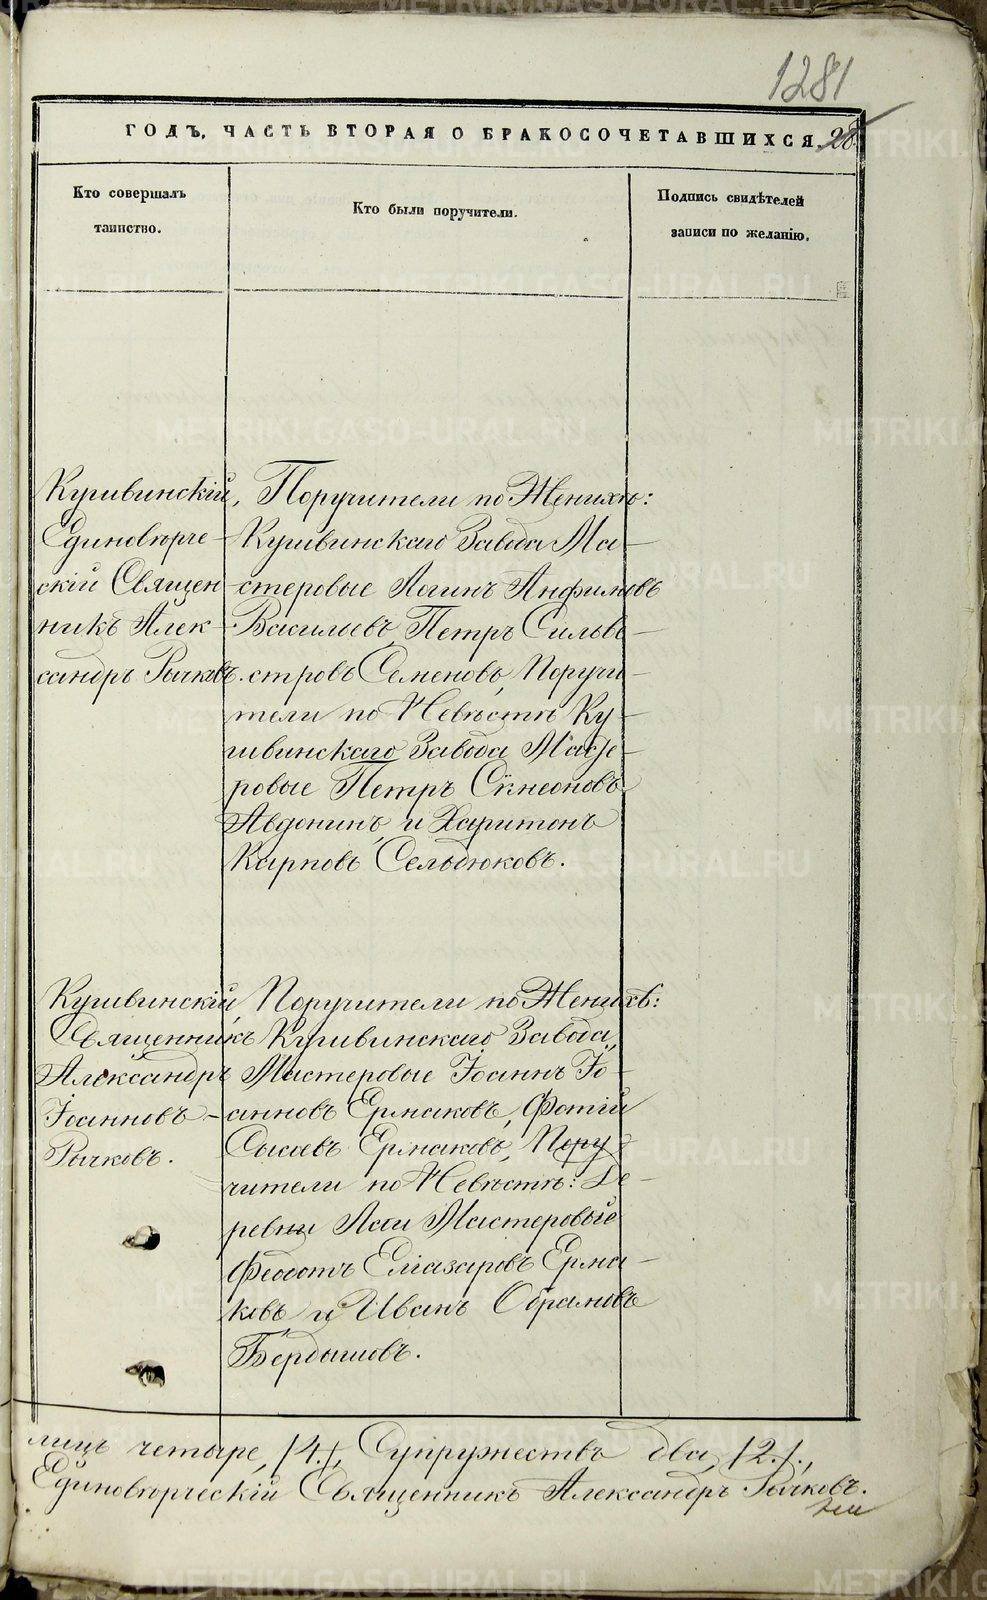 1281
ГОДЪ, ЧАСТЬ ВТОРАЯ О БРАКОСОЧЕТАВШИХСЯ. 28.
Кто совершалъ
таинство.
Кто были поручители.
Подпись свидѣтелей
записи по желанію.
Кушвинскій,
Единовѣрче-
скій Священ
никъ Алек-
сандръ Рычковъ.
Поручители по Женихѣ:
Кушвинскаго Завода Ма-
стеровые Логинъ Анфимовъ
Васильевъ, Петръ Сильве-
стровъ Семеновъ, Поручи-
тели по Невѣстѣ Ку-
швинскаго Завода Масте-
ровые Петръ Сѵмеоновъ
Авдонинъ, и Харитонъ
Карповъ Сельдюковъ.
Кушвинскій,
Священникъ
Александръ
Іоанновъ-
Рычковъ.
Поручители по Женихѣ:
Кушвинскаго Завода,
Мастеровые Іоаннъ Іо-
анновъ Ермаковъ, Фотій
Сысаевъ Ермаковъ, Пору-
чители по Невѣстѣ: Де-
ревни Лаи Мастеровые
Феодотъ Елиазаровъ Ерма-
ковъ и Иванъ Абрамовъ
Бердышовъ.
лицъ четыре, /4./, Супружествъ два, /2./.,
Единовѣрческій Священникъ Александръ Рычковъ.
METRIKI.GASO-URAL.RU